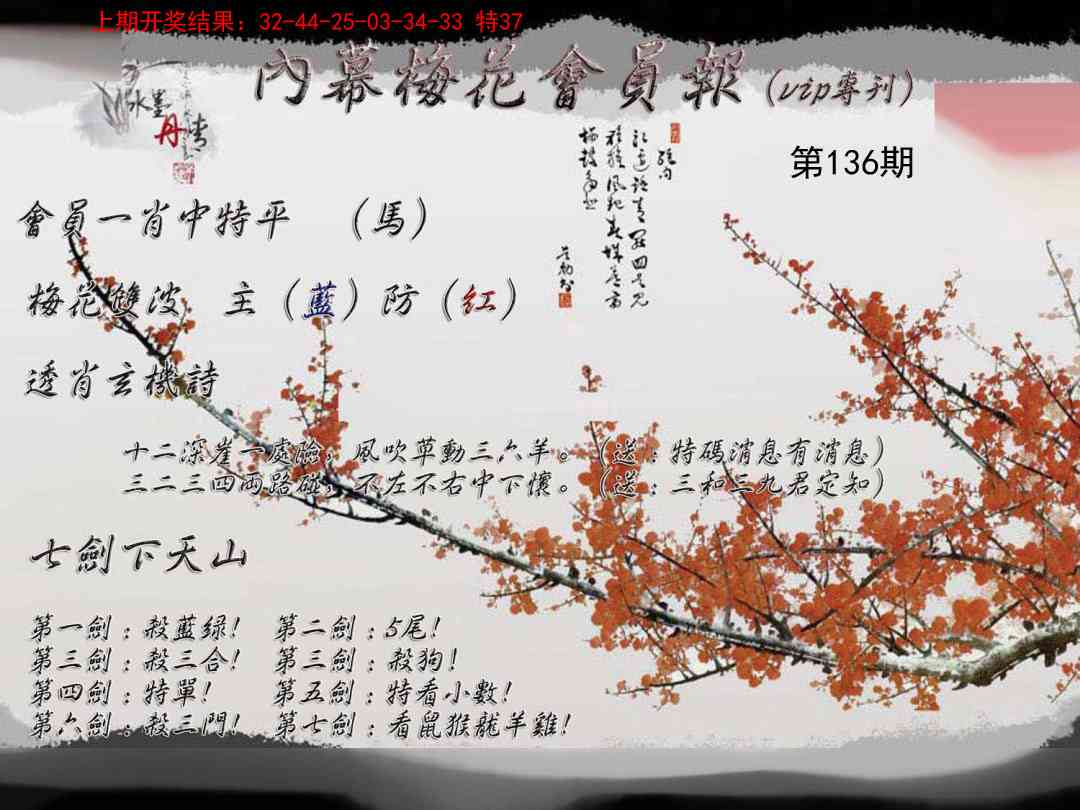 上期开奖结果：32-44-25-03-34-33 特37
內幕梅花會員報（vip專刊）
水墨
丹
情
第136期
會員一肖中特平 （馬）
梅花雙波 主（藍）防（紅）
透肖玄機詩
十二深崖一處險，風吹草動三六羊。（送：特碼消息有消息）
三二三四兩路碰，不左不右中下懷。（送：三和三九君定知）
七劍下天山
第一劍：殺藍绿！ 第二劍：5尾！
第三劍：殺三合！ 第三劍：殺狗！
第四劍：特單！ 第五劍：特看小數！
第六劍：殺三門！ 第七劍：看鼠猴龍羊雞！